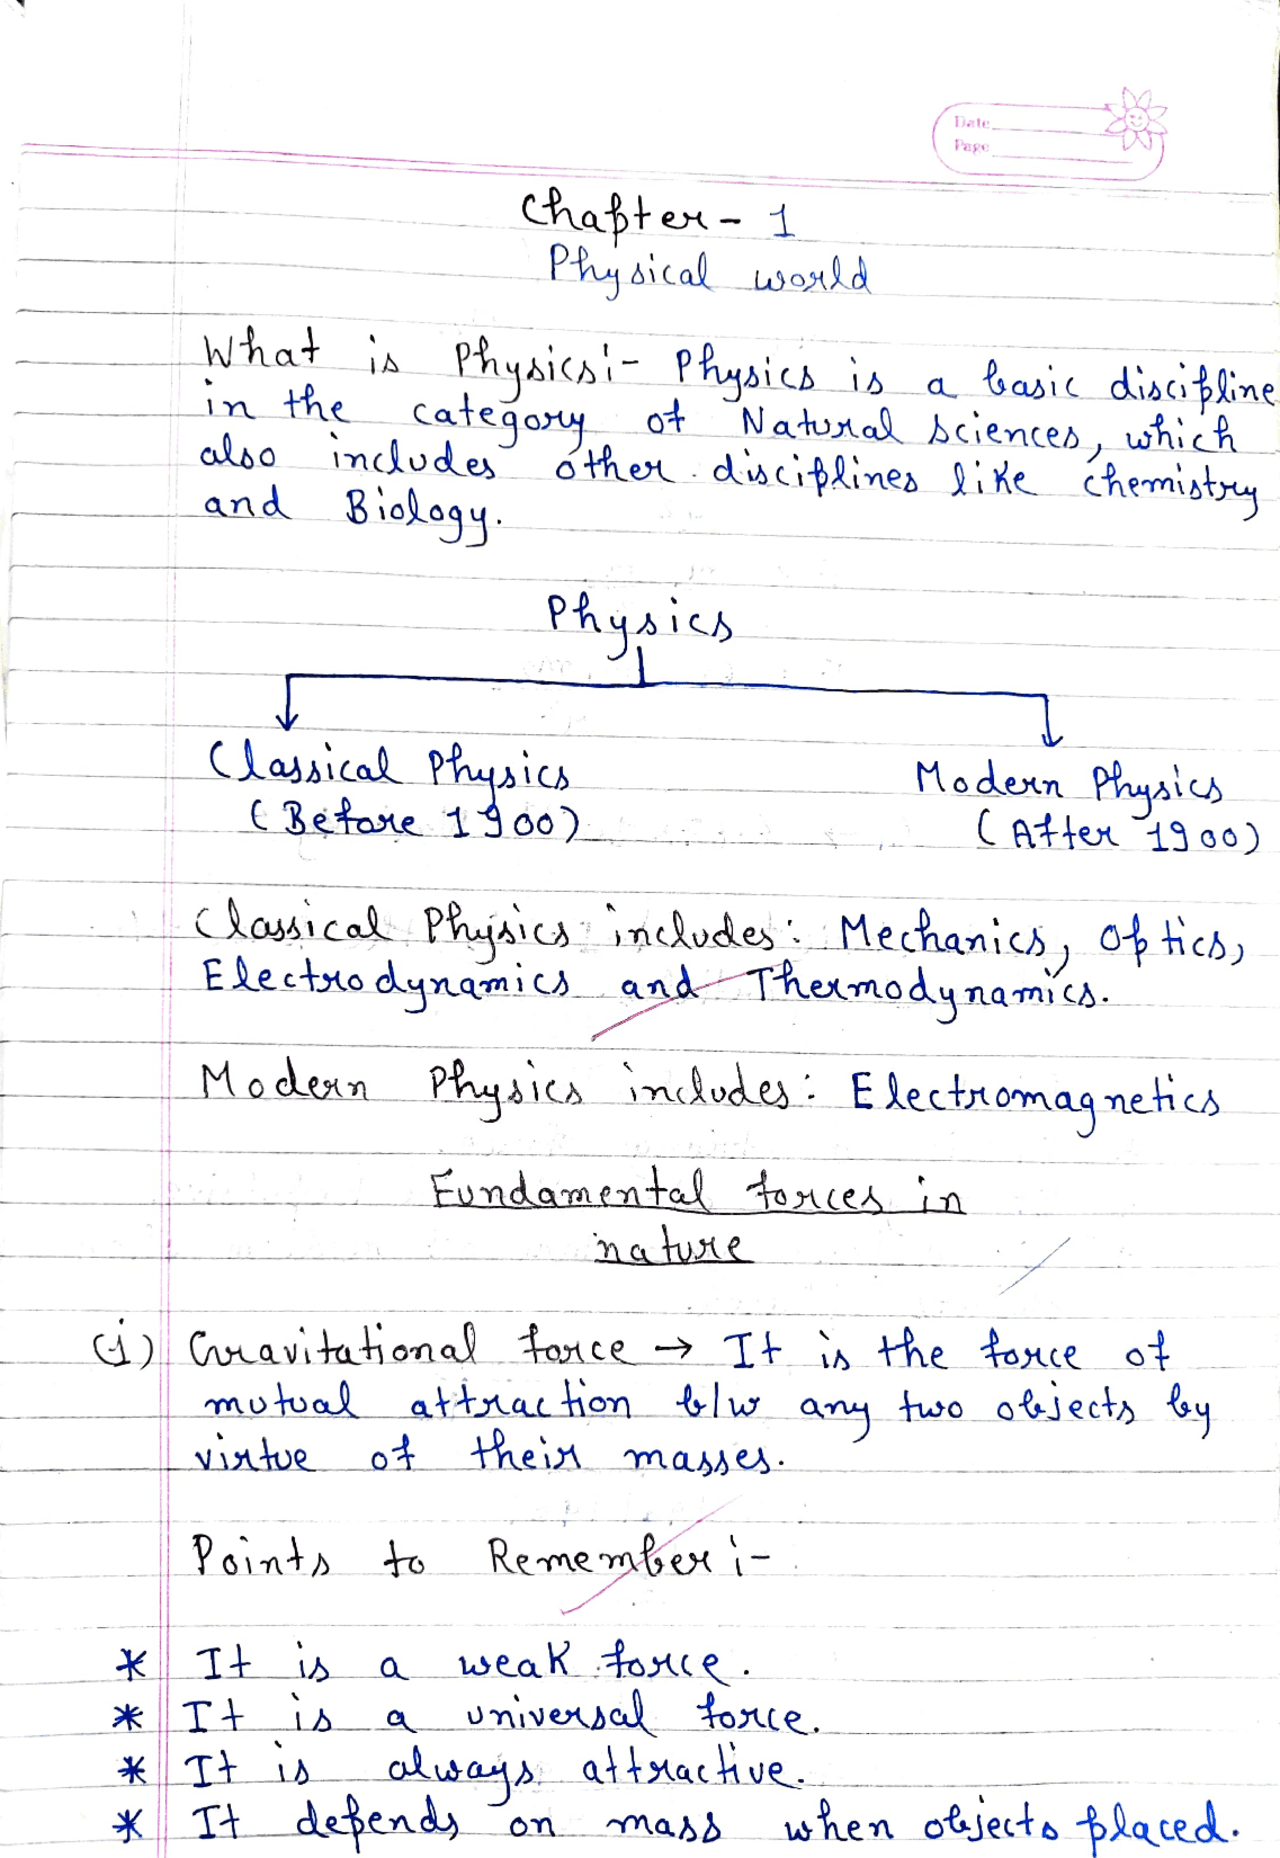 Date
Page
Chapter - 1
Physical world
What is Physics:- Physics is a basic discipline
in the category of Natural sciences, which
also includes other disciplines like chemistry
and Biology.
Physics
Classical Physics
(Before 1900)
Modern Physics
(After 1900)
Classical Physics includes: Mechanics, Optics,
Electrodynamics and Thermodynamics.
Modern Physics includes: Electromagnetics
Fundamental forces in
nature
(i) Gravitational force → It is the force of
mutual attraction b/w any two objects by
virtue of their masses.
Points to Remember :-
* It is a weak force.
* It is a universal force.
* It is always attractive.
* It depends on mass when objects placed.